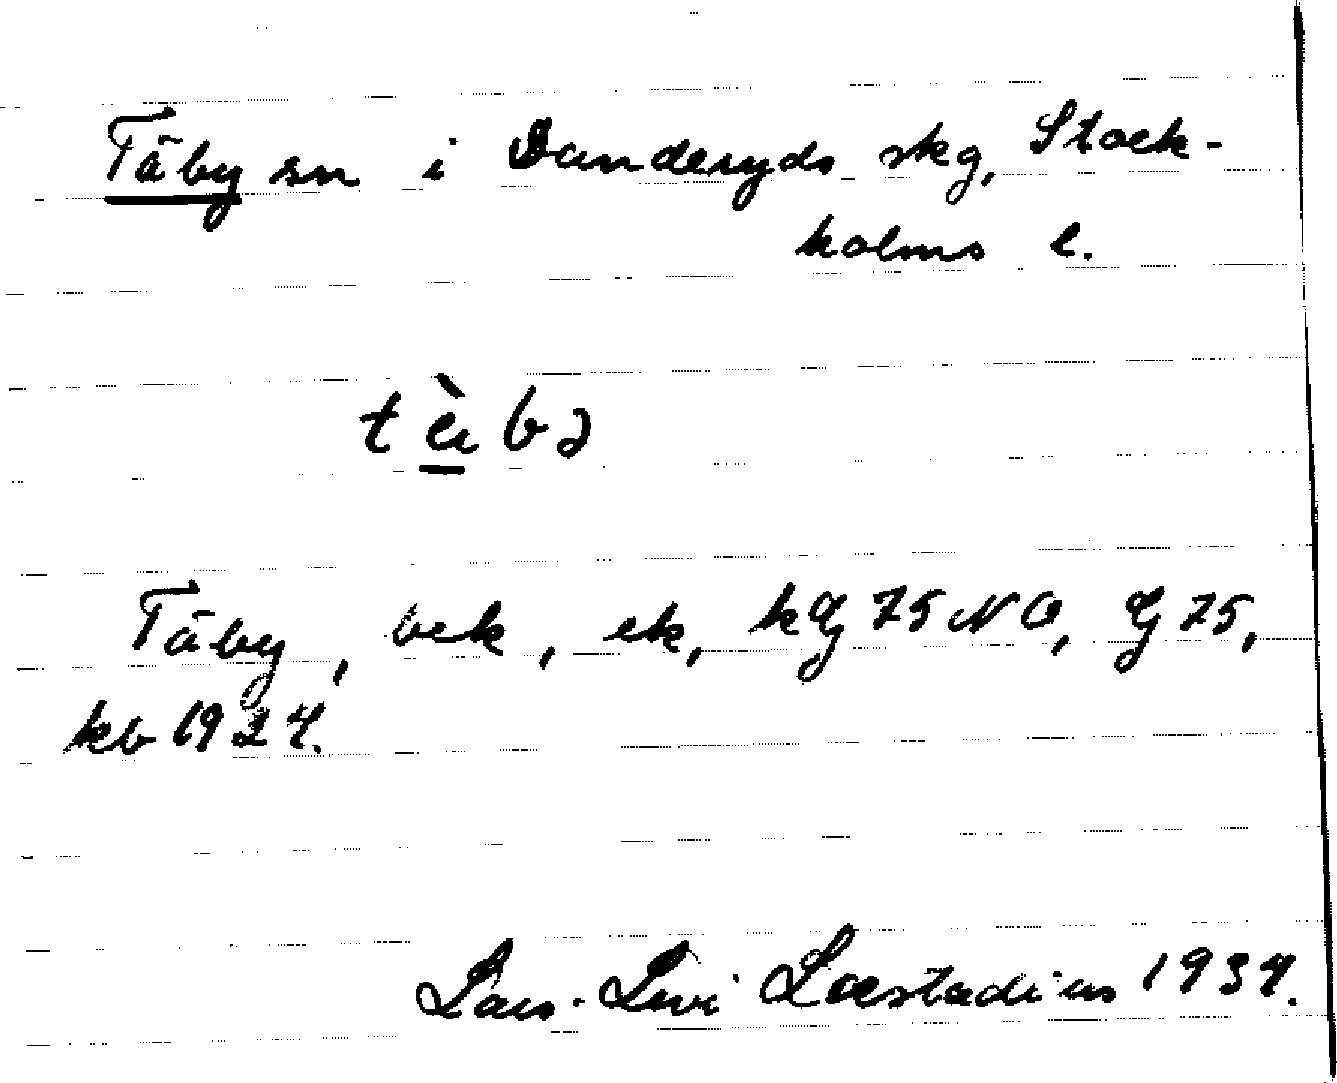 Täby sn i Danderyds skg, Stock-
holms l.
tὲbə
Täby, bek, ek, kG 75 NO, G 75,
kb 1924.
Lars-Levi Læstadius 1934.